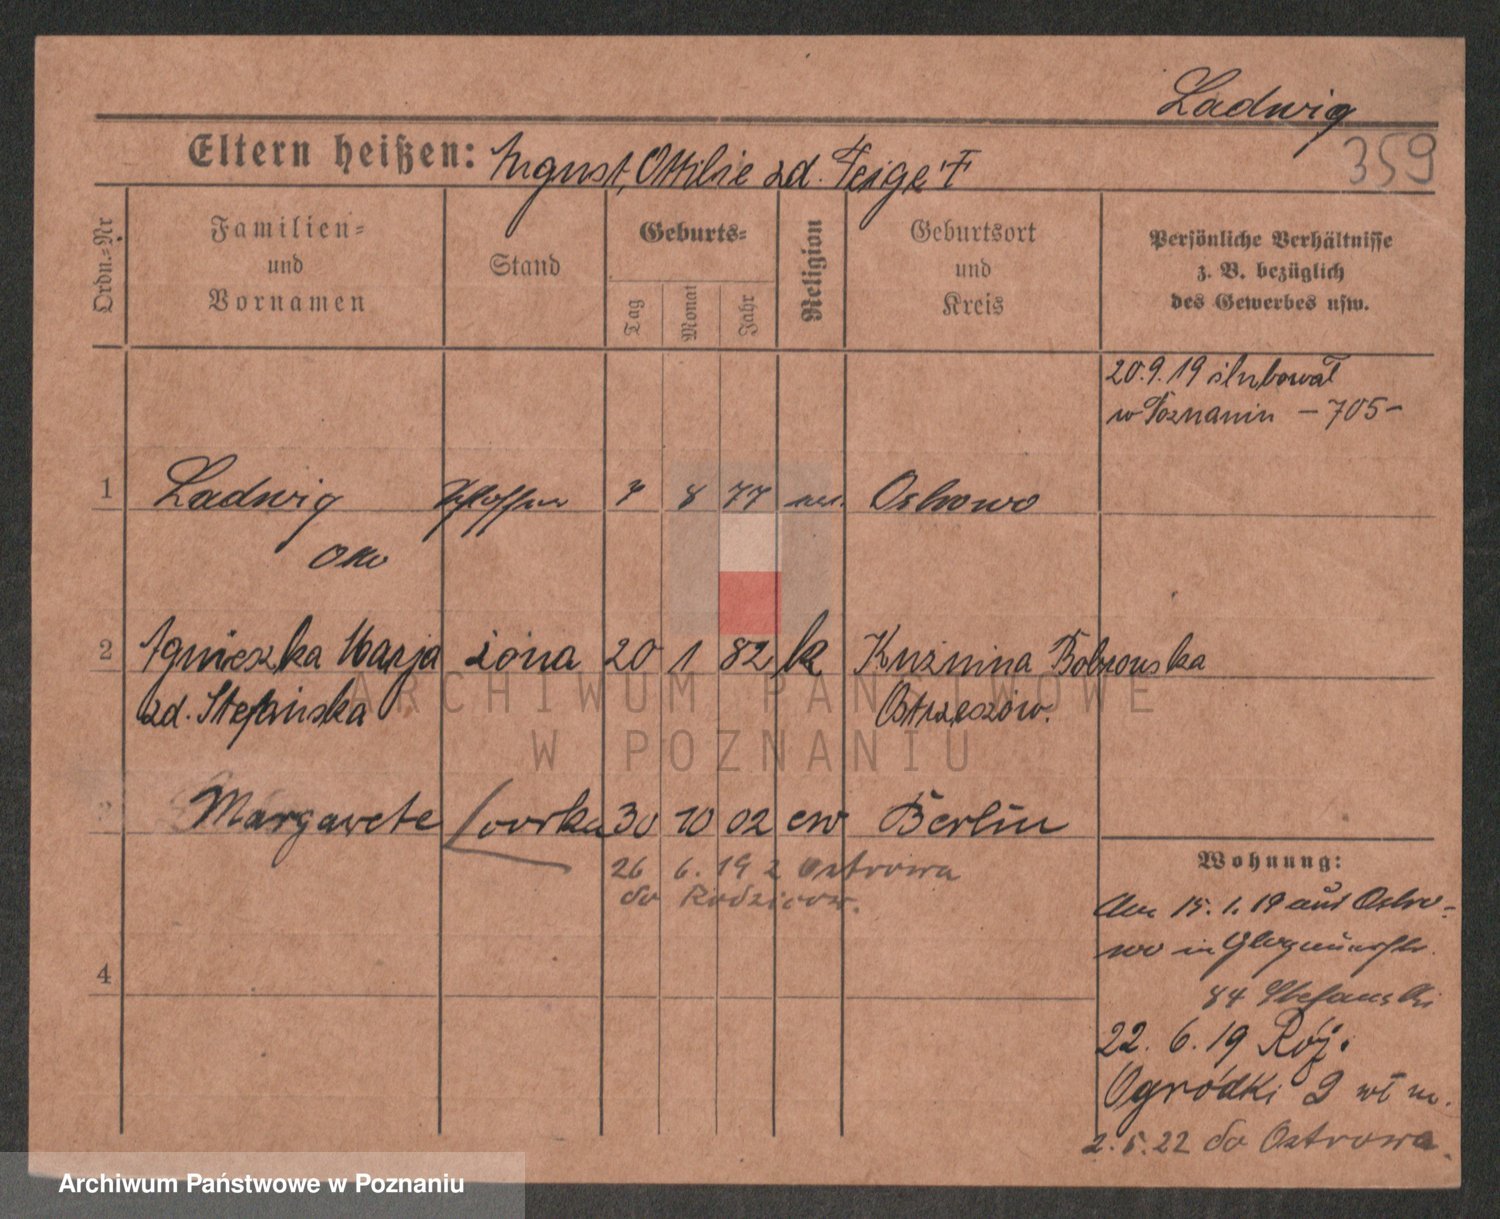 Ladwig
359
Eltern heißen: August, Ottilie zd. Feige
Ordn.=Nr
Familien= und Vornamen
Stand
Geburts=
Tag
Monat
Jahr
Religion
Geburtsort und Kreis
Persönliche Verhältnisse
z. B. bezüglich
des Gewerbes usw.
20.9.19 ślubował
w Poznaniu – 705 –
1 Ladwig Schlosser 7 8 77 ev. Ostrowo
Otto
2 Agnieszka Marja żona 20 1 82 k Kuźnina Bobrowska
zd. Stefańska Ostrzeszów.
Margarete córka 30 10 02 ew Berlin
26 6. 19 z Ostrowa
do Rodziców.
4
Wohnung:
15. 1. 19 aus Ostro-
wo in
84 Stefanski
22. 6. 19 Róż.
Ogródki 2 wł m.
2. 5. 22 do Ostrowa.
ARCHIWUM PAŃSTWOWE
W POZNANIU
Archiwum Państwowe w Poznaniu